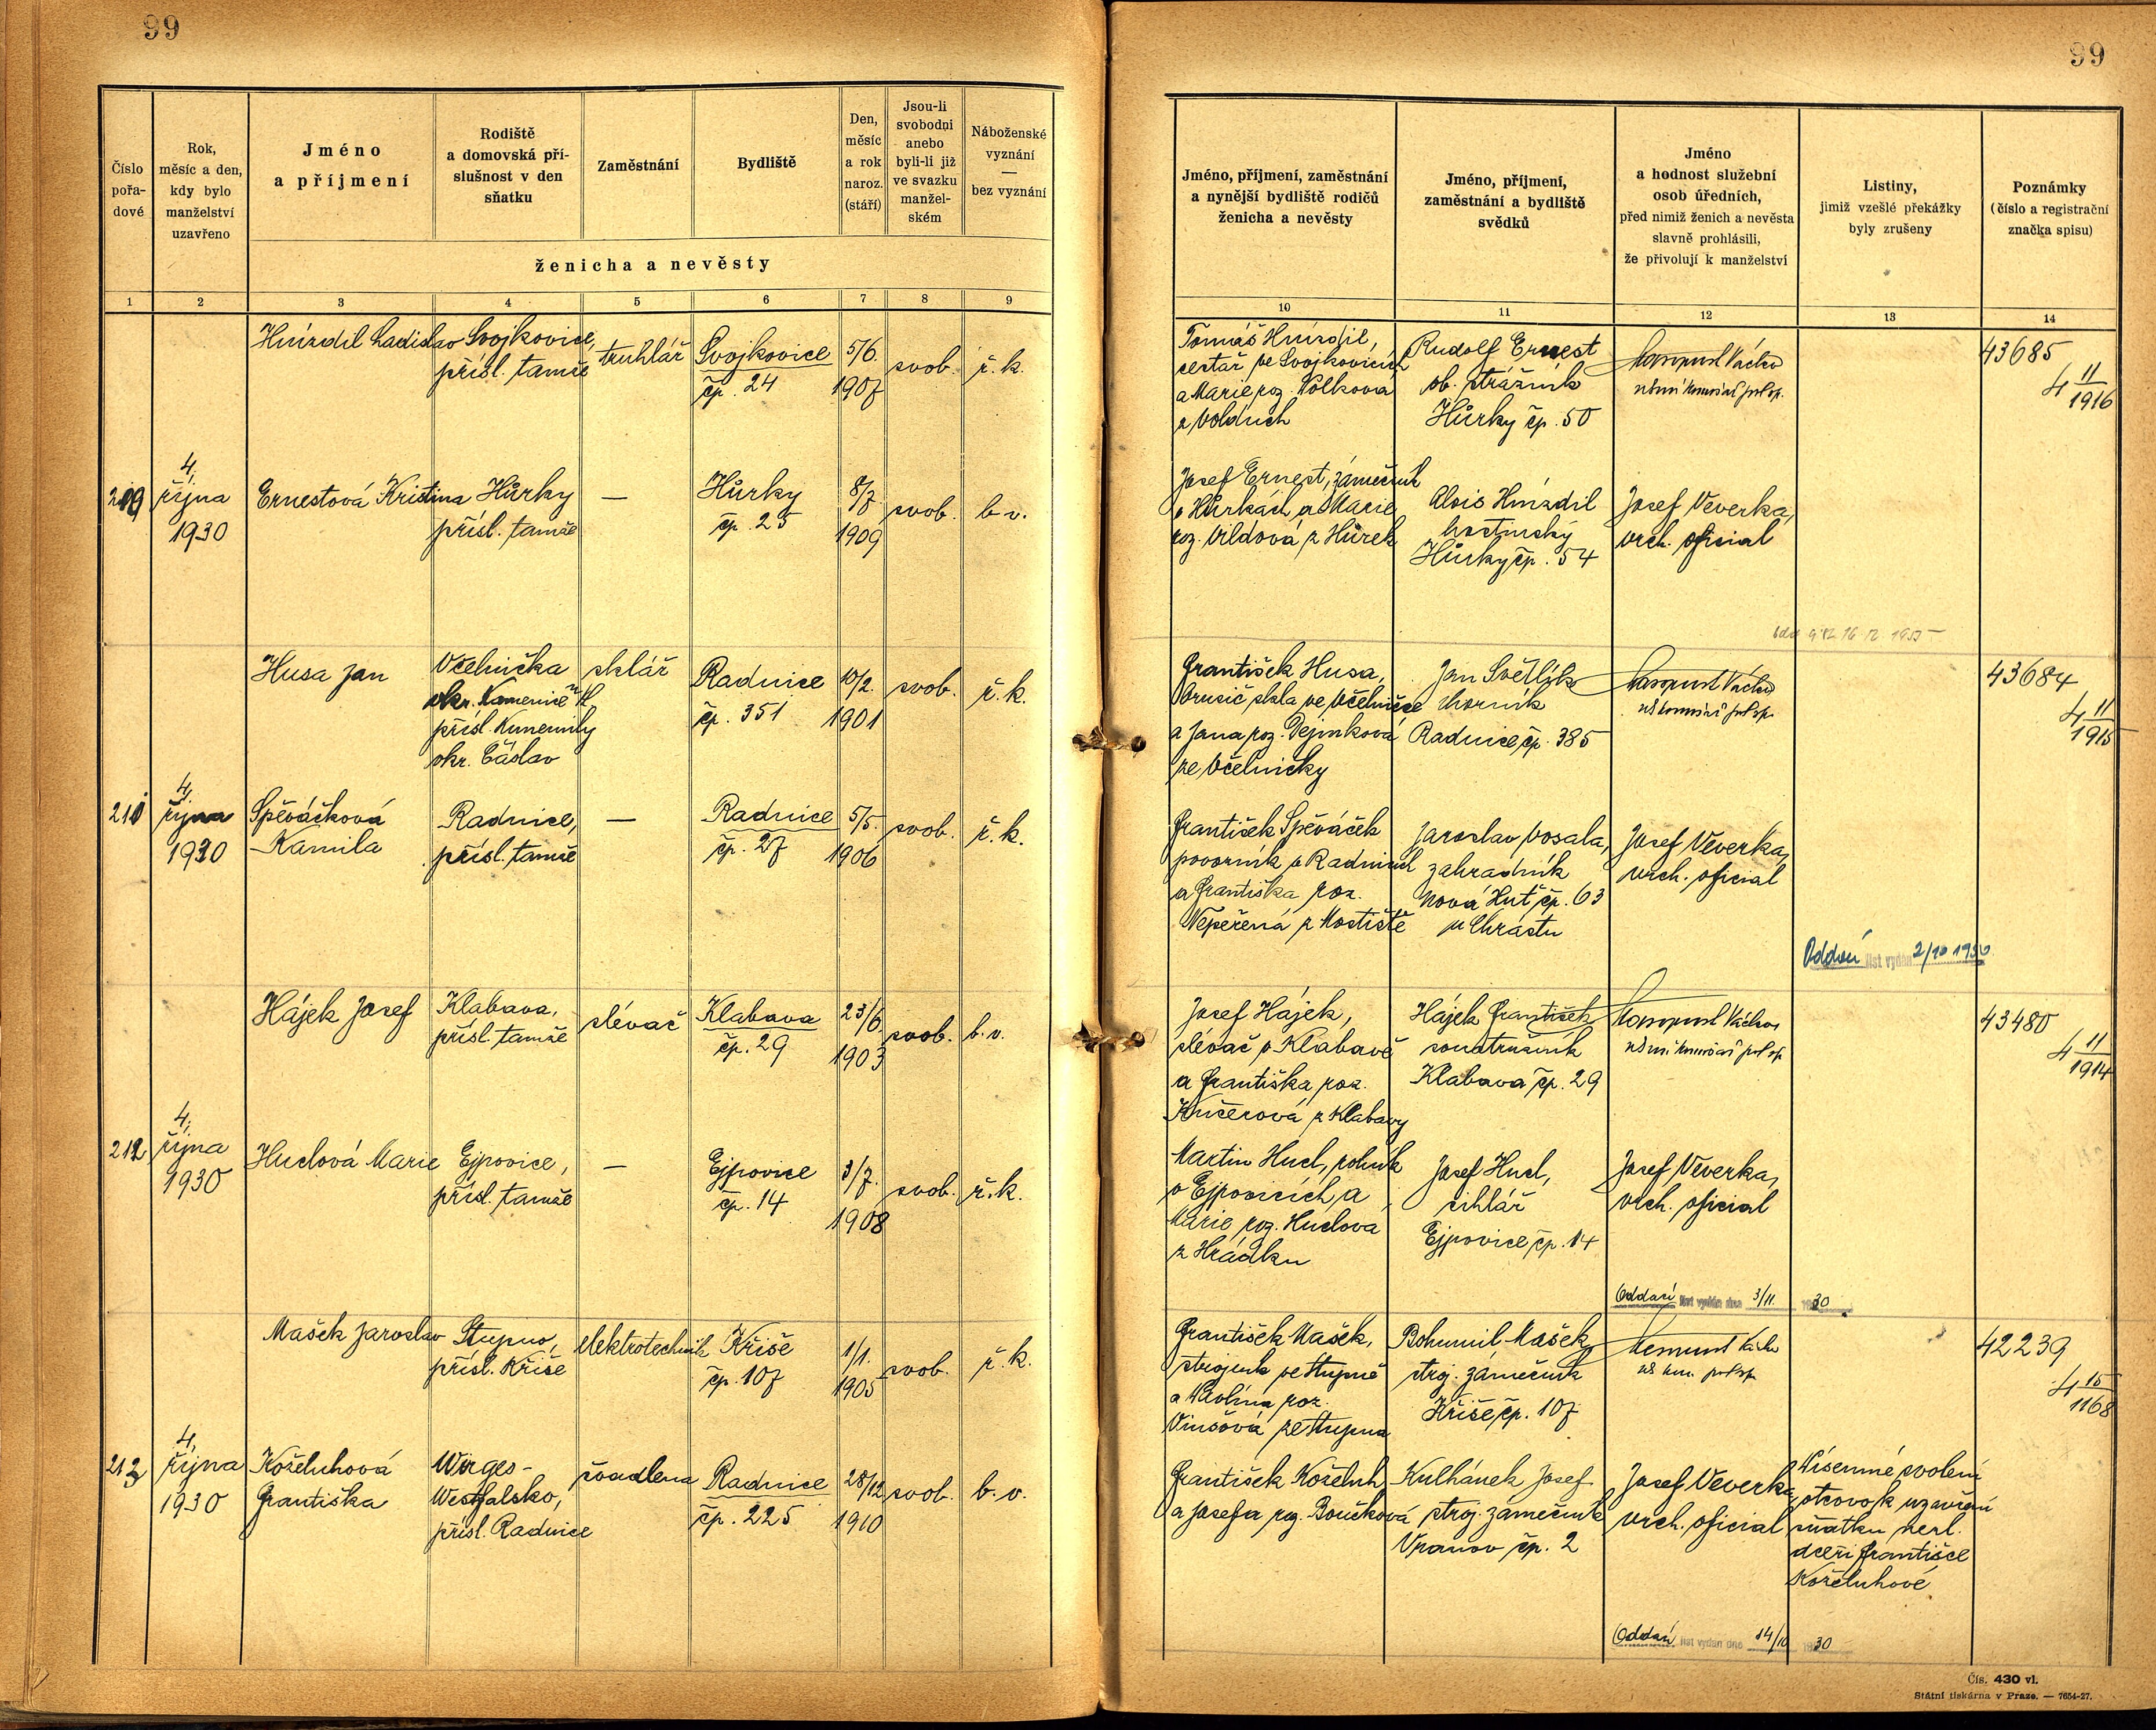 99
Číslo
pořa-
dové
Rok,
měsíc a den,
kdy bylo
manželství
uzavřeno
Jméno
a příjmení
Rodiště
a domovská pří-
slušnost v den
sňatku
Zaměstnání
Bydliště
Den,
měsíc
a rok
naroz.
(stáří)
Jsou-li
svobodni
anebo
byli-li již
ve svazku
manžel-
ském
Náboženské
vyznání
—
bez vyznání
ženicha a nevěsty
1 2 3 4 5 6 7 8 9
Hnízdil Ladislav Svojkovice, truhlář Svojkovice 5/6. svob. ř.k.
přísl. tamže čp. 24 1907
4.
209 října Ernestová Kristina Hůrky — Hůrky 8/7 svob. b.v.
1930 přísl. tamže čp. 25 1909
Husa Jan Včelnička sklář Radnice 10/2. svob. ř.k.
okr. Kamenice n/L čp. 351 1901
přísl.
okr. Čáslav
4.
211 října Spěváčková Radnice, — Radnice 5/5. svob. ř.k.
1930 Kamila přísl. tamže čp. 27 1906
Hájek Josef Klabava, slévač Klabava 23/6. svob. b.v.
přísl. tamže čp. 29 1903
4.
212 října Huclová Marie Ejpovice, — Ejpovice 3/7. svob. ř.k.
1930 přísl. tamže čp. 14 1908
Mašek Jaroslav Stupno, elektrotechnik Kříše 1/1. svob. ř.k.
přísl. Kříše čp. 107 1905
4.
213 října Koželuhová Wirges- švadlena Radnice 28/12 svob. b.v.
1930 Františka Westfalsko, čp. 225 1910
přísl. Radnice
99
Jméno, příjmení, zaměstnání
a nynější bydliště rodičů
ženicha a nevěsty
Jméno, příjmení,
zaměstnání a bydliště
svědků
Jméno
a hodnost služební
osob úředních,
před nimiž ženich a nevěsta
slavně prohlásili,
že přivolují k manželství
Listiny,
jimiž vzešlé překážky
byly zrušeny
Poznámky
(číslo a registrační
značka spisu)
10 11 12 13 14
Tomáš Hnízdil, Rudolf Ernest Václav 43685
cestář ve Svojkovicích ob. strážník 4 11/1916
a Marie roz. Volková Hůrky čp. 50
z Volduch
Josef Ernest, zámečník Alois Hnízdil Josef Veverka,
v Hůrkách a Marie hostinský vrch. oficial
roz. Vildová z Hůrek Hůrky čp. 54
František Husa, Jan Světlík Václav 43684
brusič skla ve Včelničce horník 4 11/1915
a Jana roz. Dejmková Radnice čp. 385
ze Včelničky
František Spěváček Jaroslav Vosala, Josef Veverka,
v Radnicích zahradník vrch. oficial
a Františka roz. Nová Huť čp. 63
Nepeřená z Mostiště u Chrástu
Oddací list vydán 2/10 1950
Josef Hájek, Hájek František Václav 43480
slévač v Klabavě soustružník 4 11/1914
a Františka roz. Klabava čp. 29
Kučerová z Klabavy
Martin Hucl, rolník Josef Hucl, Josef Veverka,
v Ejpovicích, a cihlář vrch. oficial
Marie roz. Huclová Ejpovice čp. 14
z Hrádku
Oddací list vydán dne 3/11. 1930
František Mašek, Bohumil Mašek 42239
strojník ve Stupně stroj. zámečník 4 15/1168
a Karolina roz. Kříše čp. 107
Vinšová ze Stupna
František Koželuh Kulhánek Josef Josef Veverka Písemné svolení
a Josefa roz. Boučková stroj. zámečník vrch. oficial otcovo k uzavření
Vranov čp. 2 sňatku nezl.
dceři Františce
Koželuhové
Oddací list vydán dne 14/10 1930
Čís. 430 vl.
Státní tiskárna v Praze. — 7654-27.